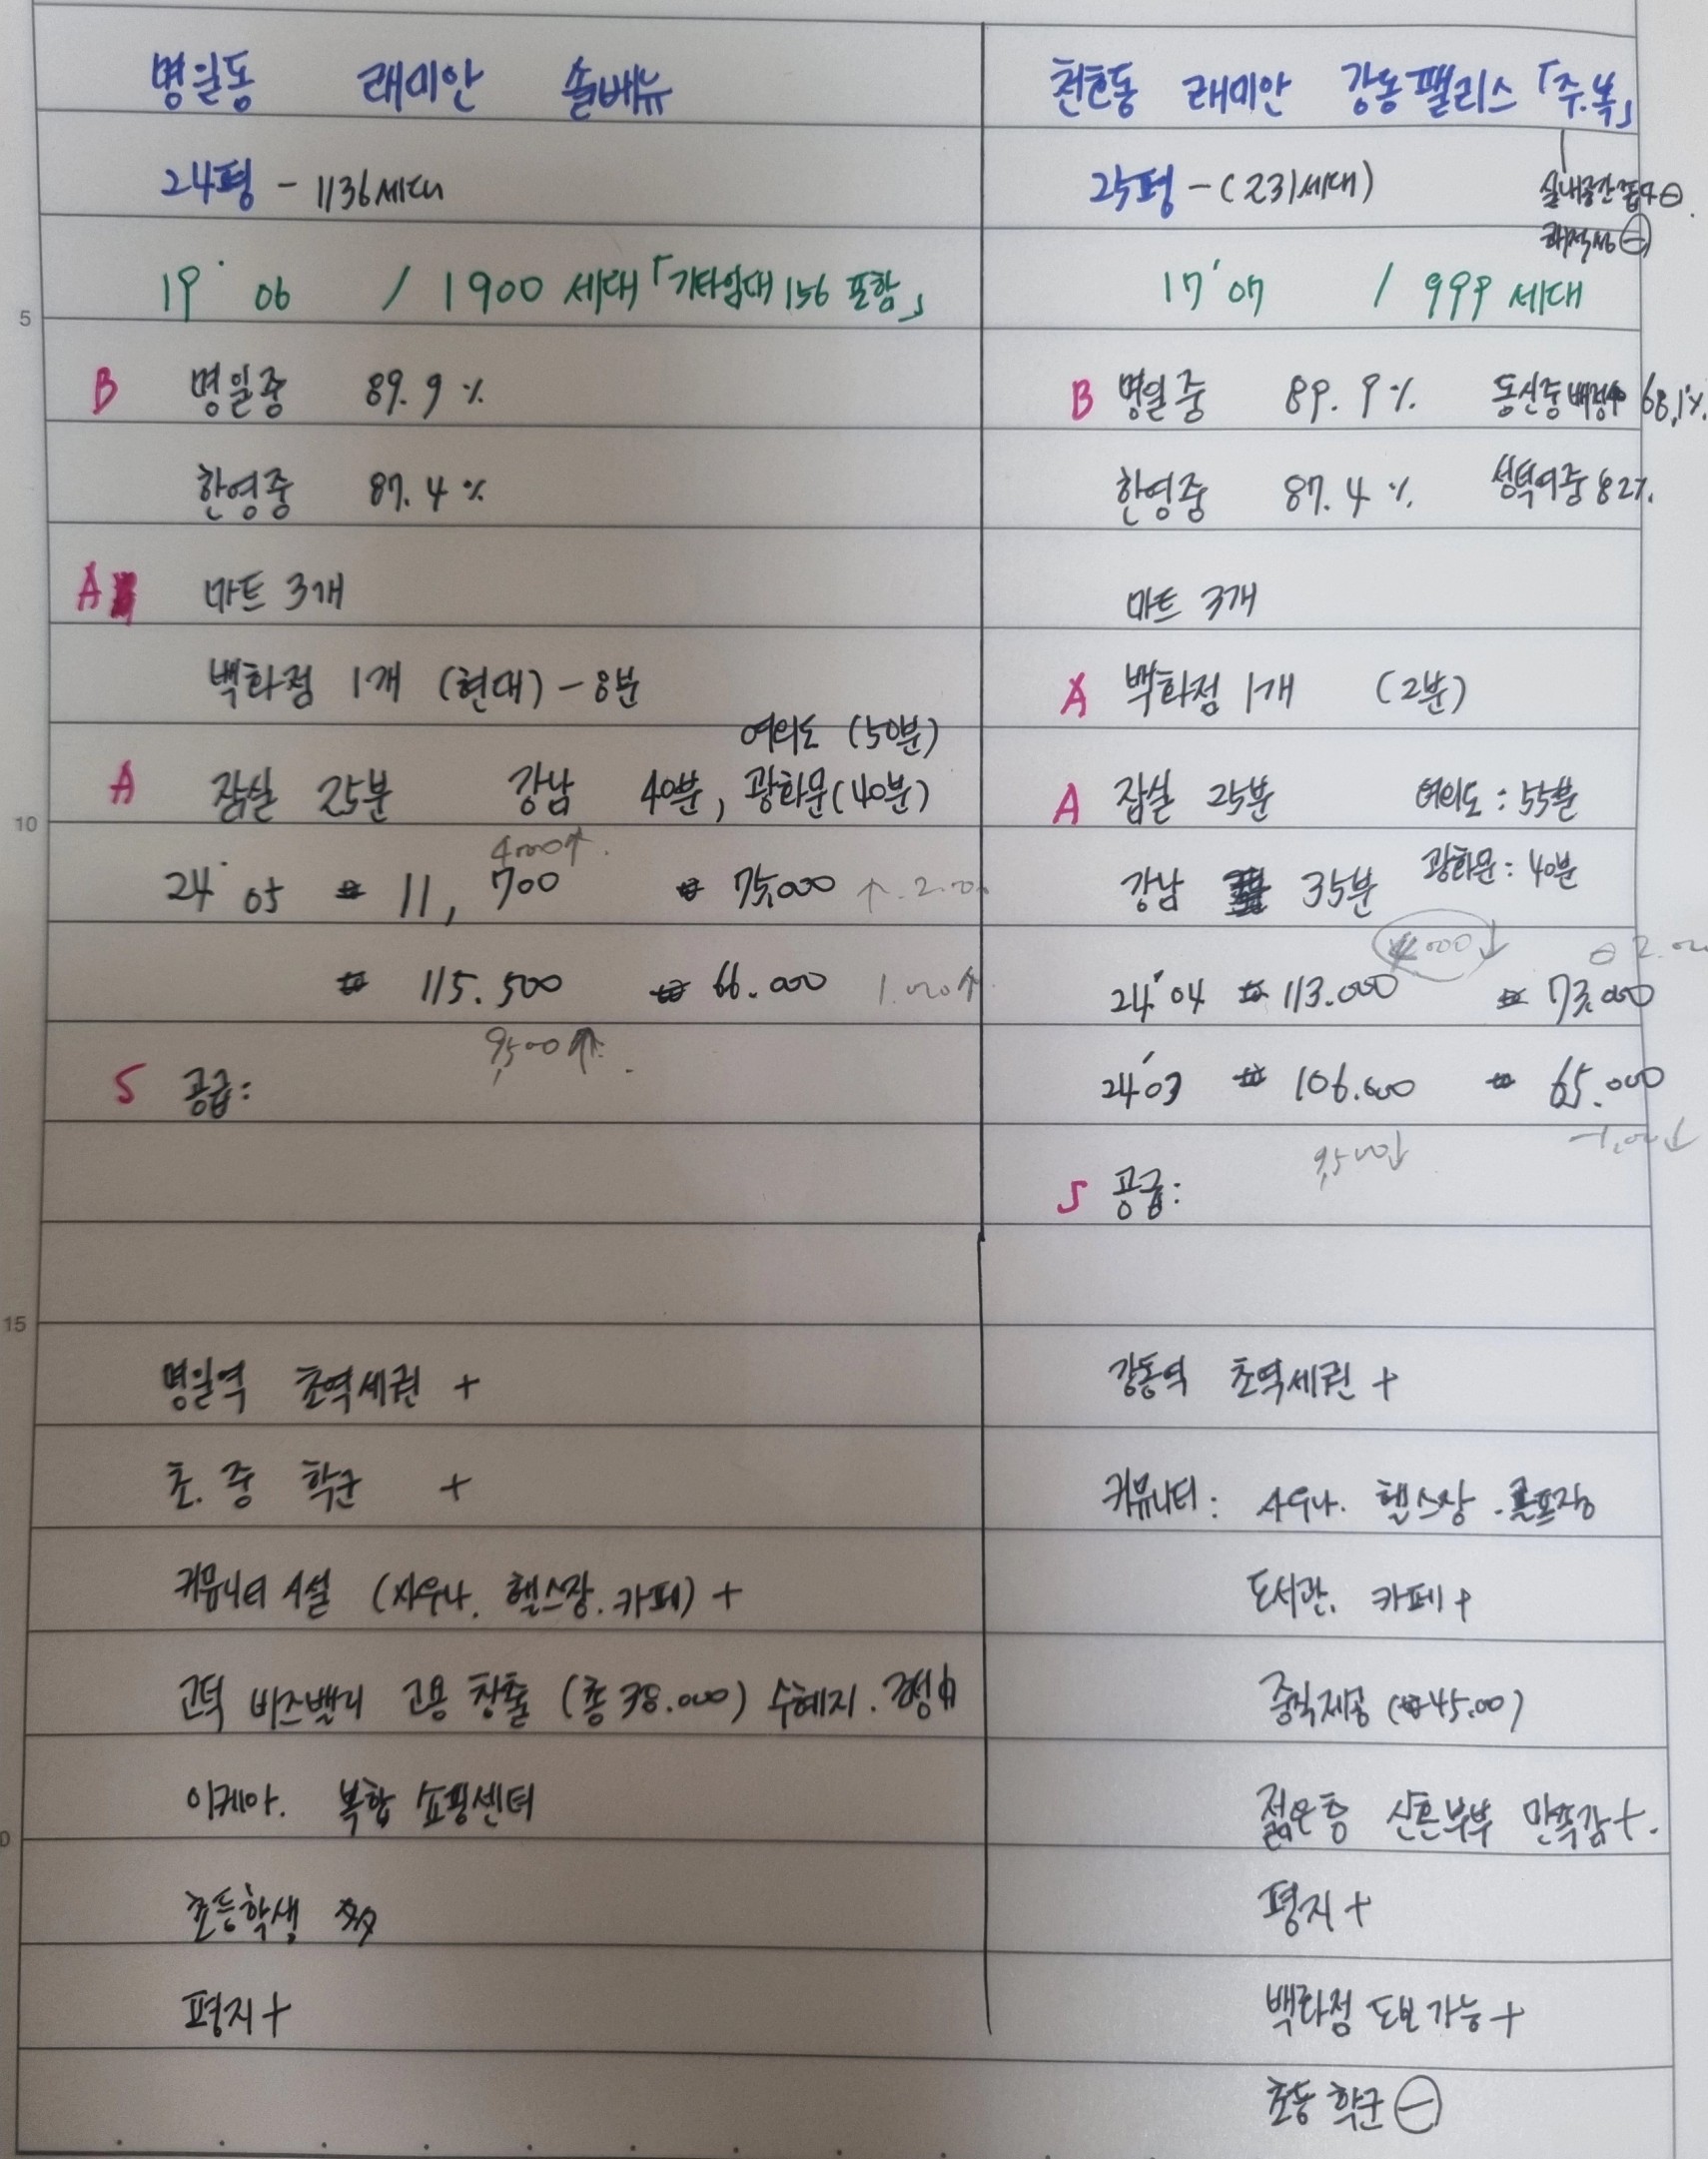 명일동 래미안 솔베뉴
24평 - 1136세대
19' 06 / 1900 세대 「기타임대 156 포함」
B 명일중 89.9%
한영중 87.4%
A 마트 3개
백화점 1개 (현대) - 8분
여의도 (50분)
A 잠실 25분 강남 40분, 광화문(40분)
4000↑.
24' 05 ₩ 11,700 ₩ 75,000 ↑.2.00
₩ 115.500 ₩ 66.000 1.000↑
9,500↑.
S 공급:
명일역 초역세권 +
초.중 학군 +
커뮤니티 시설 (사우나. 헬스장. 카페) +
고덕 비즈밸리 고용 창출 (총 38.000) 수혜지.
이케아. 복합 쇼핑센터
초등학생 多
평지 +
천호동 래미안 강동팰리스 「주.복」
25평 - (231세대)
실내공간 좁다 ⊖.
쾌적성 ⊖
17' 07 / 999 세대
B 명일중 89.9% 동신중 배정 68.1%.
한영중 87.4% 성덕여중 82%.
마트 3개
A 백화점 1개 (2분)
A 잠실 25분 여의도 : 55분
강남 35분 광화문 : 40분
4000↓ ⊖ 2.000
24' 04 ₩ 113.000 ₩ 73.000
24' 03 ₩ 106.000 ₩ 65.000
9,500↓ -1,000↓
S 공급:
강동역 초역세권 +
커뮤니티 : 사우나. 헬스장. 골프장
도서관. 카페 +
중식제공 (₩45.00)
젊은층 신혼부부 만족감 +.
평지 +
백화점 도보 가능 +
초등 학군 ⊖
5
10
15
0